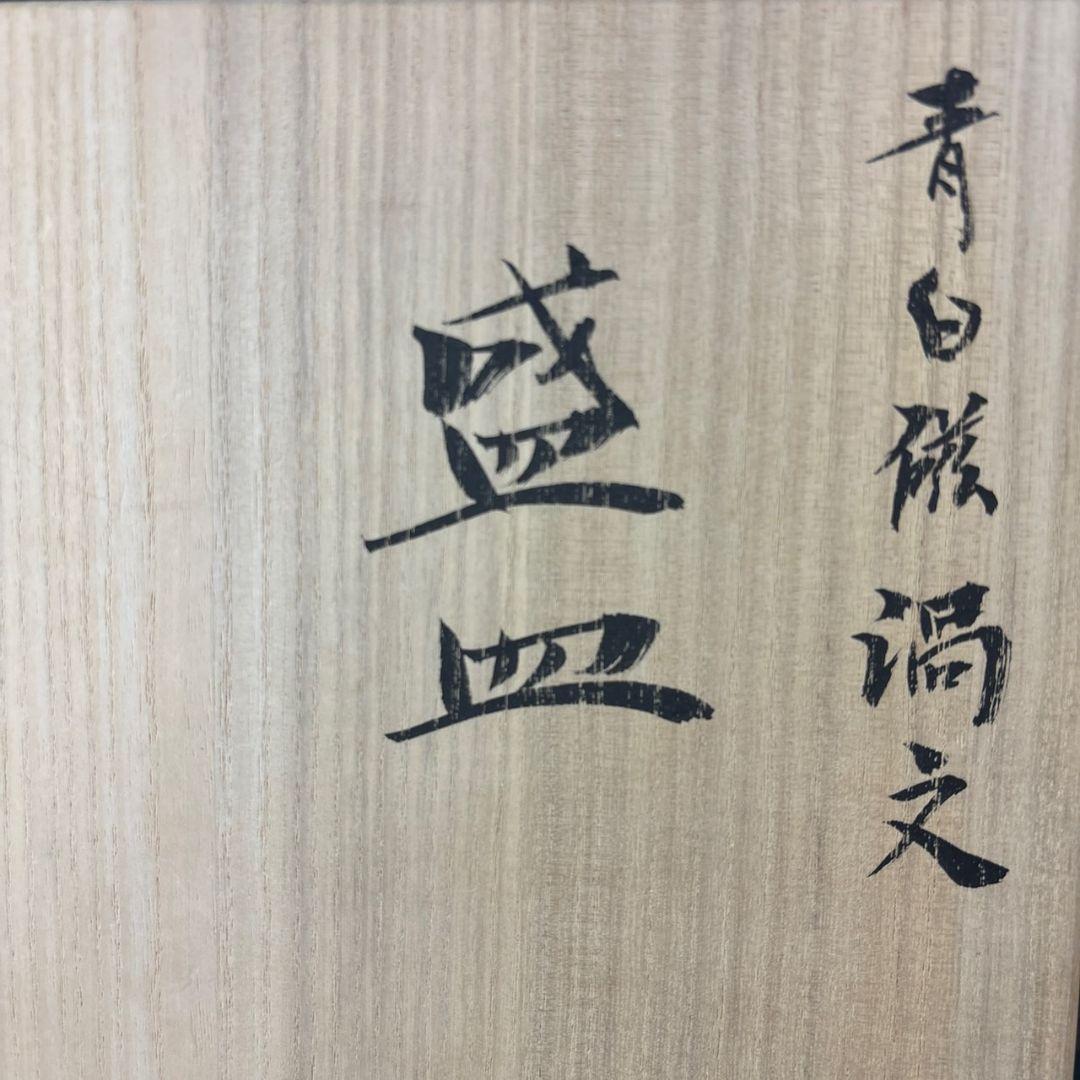 青白磁渦文
盛皿